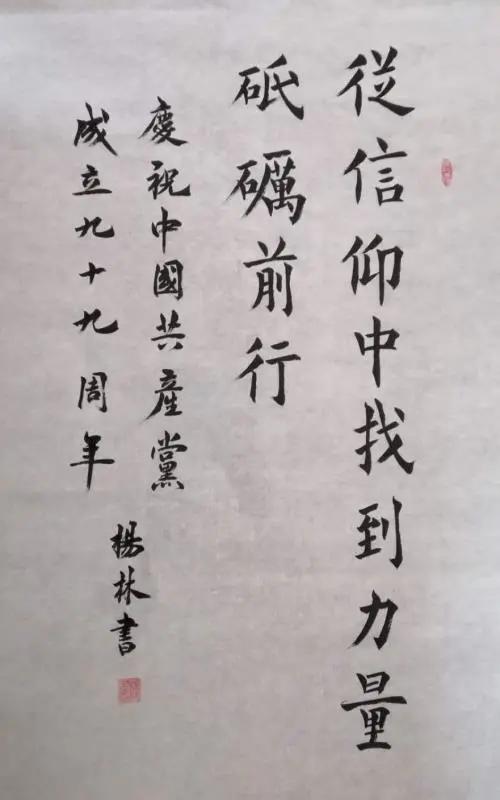 從信仰中找到力量
砥礪前行
慶祝中國共產黨
成立九十九周年
楊林書